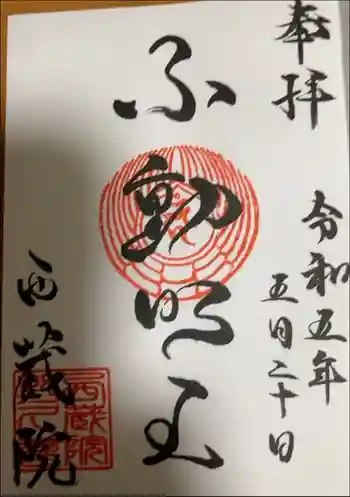 奉拝
令和五年
五月二十日
不動明王
西蔵院